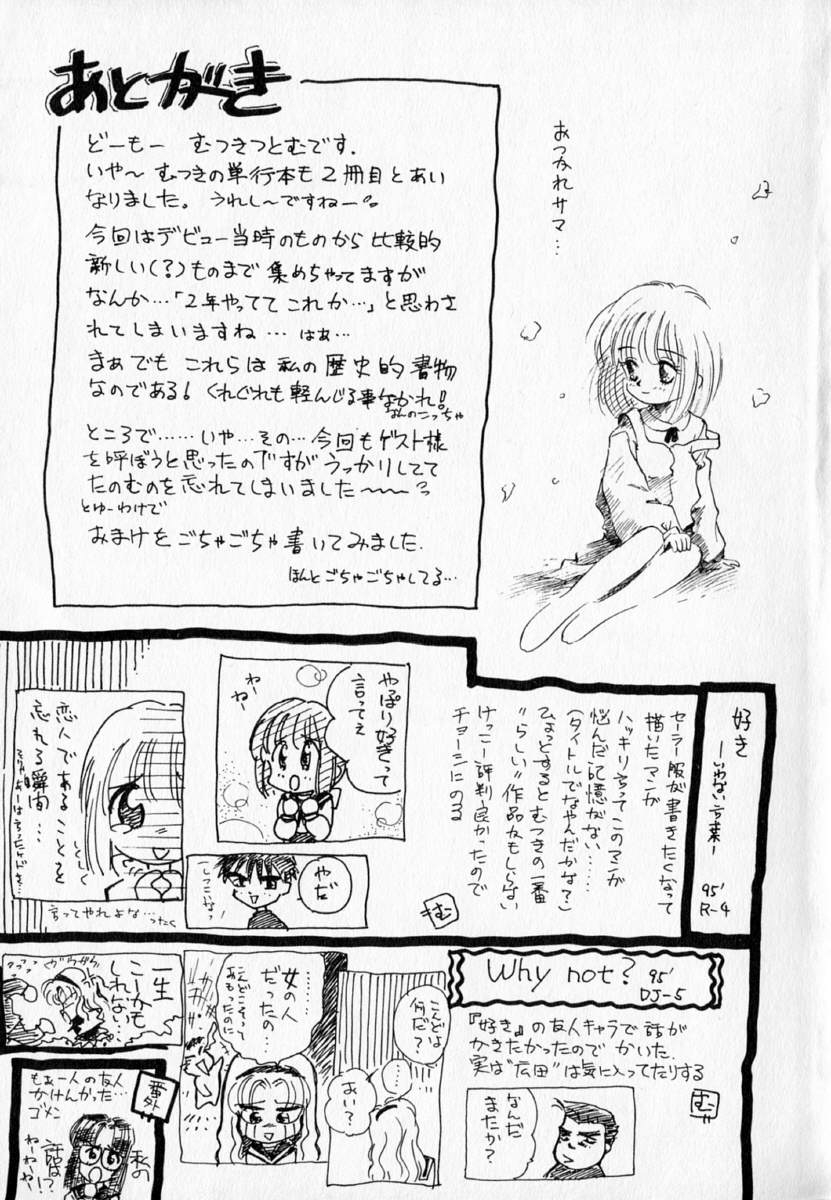 あとがき
どーもー むつきつとむです.
いや〜 むつきの単行本も2冊目とあい
なりました。うれし〜ですねー
今回はデビュー当時のものから比較的
新しい(?)ものまで集めちゃってますが
なんか…「2年やってて これか…」と思わさ
れてしまいますね… はぁ…
まぁでも これらは私の歴史的書物
なのである! くれぐれも軽んじる事なかれ!
なんのこっちゃ
ところで……いや…その…今回もゲスト様
を呼ぼうと思ったのですがうっかりしてて
たのむのを忘れてしまいました〜〜
とゆーわけで
おまけをごちゃごちゃ書いてみました.
ほんとごちゃごちゃしてる…
おつかれサマ…
好き
―いけない言葉―
95'
R-4
セーラー服が書きたくなって
描いたマンガ
ハッキリ言ってこのマンガ
悩んだ記憶がない……
(タイトルでなやんだかな?)
ひょっとするとむつきの一番
"らしい"作品かもしらない
けっこー評判良かったので
チョーシにのる
む
やっぱり好きって
言ってぇ
ねー
ねー
やだ
しつこいなっ
恋人であることを
忘れる瞬間…
しくしく
言ってやれよな…ったく
Why not?
95'
DJ-5
『好き』の友人キャラで話が
かきたかったので かいた.
実は"広田"は気に入ってたりする
む
なんだ
またか?
こんどは
何だ?
あい?
女の人
だったの…
こんどこそって
おもったのに
一生
こーかも
しれない…
番外
もぉ一人の友人
かけんかった…
ゴメン
私の
話は?
ねーねーや!?